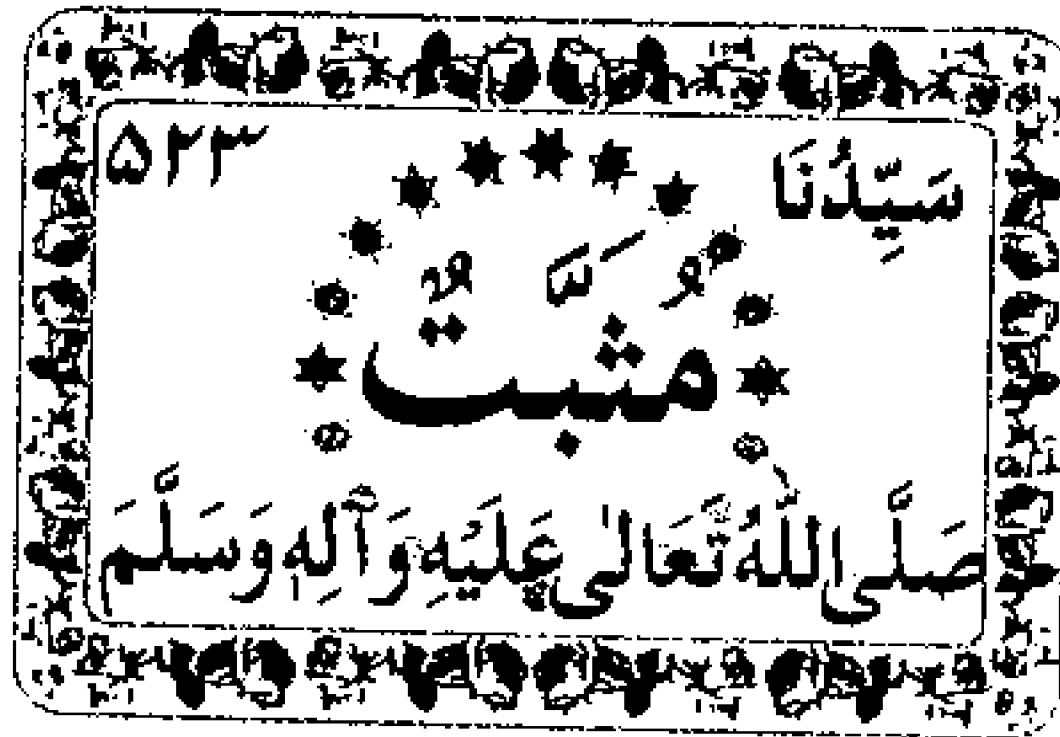 سَيِّدُنَا ۵۲۳
مُثَبَّتٌ
صَلَّى اللّٰهُ تَعَالٰى عَلَيْهِ وَآلِهٖ وَسَلَّمَ